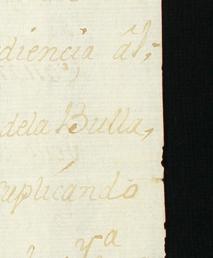 diencia al;
dela Bulla,
suplicando